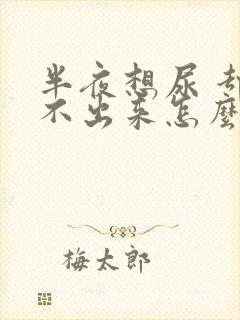 半夜想尿却
不出来怎麼
梅太郎